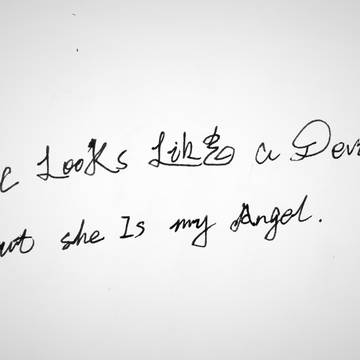 e Looks Like a Dev
but she Is my Angel.